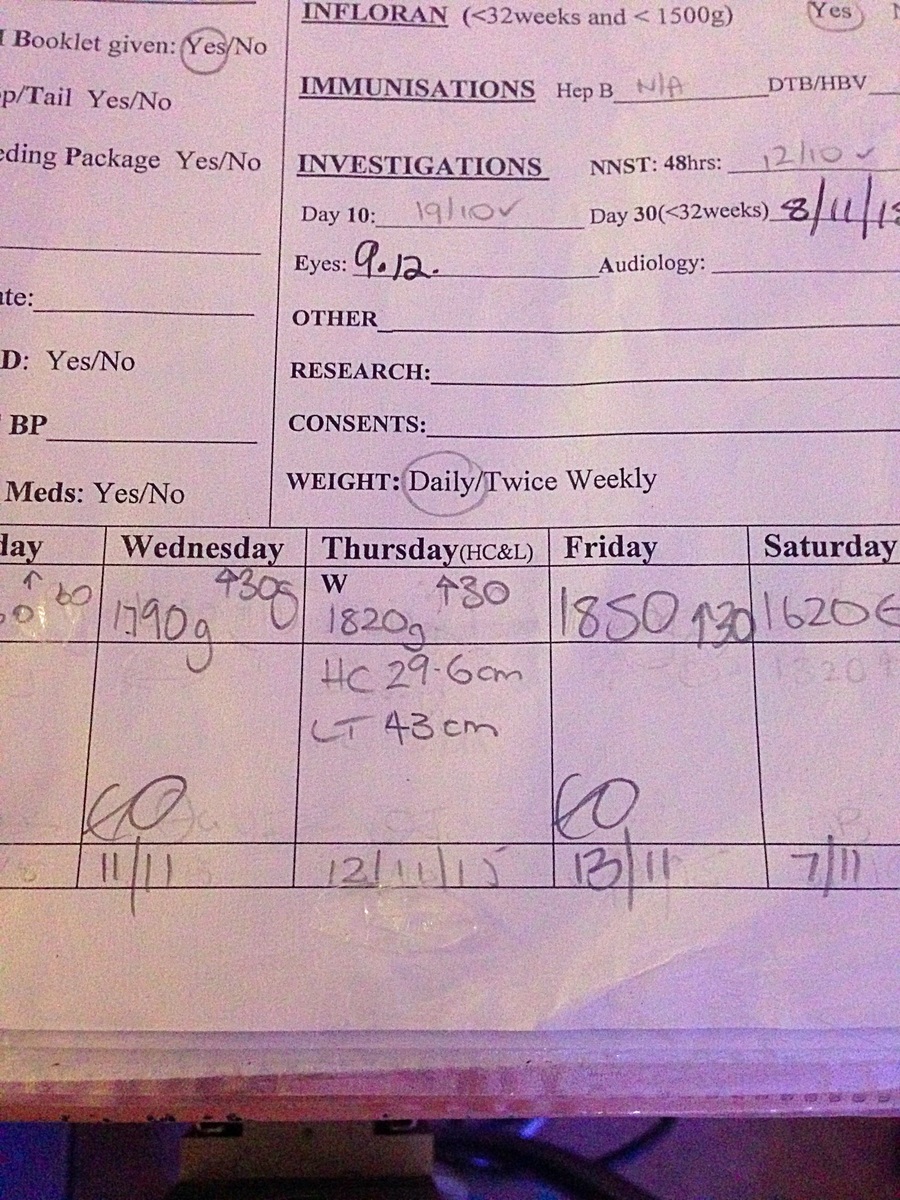 INFLORAN (<32weeks and < 1500g) Yes
Booklet given: Yes/No
IMMUNISATIONS Hep B N/A DTB/HBV
p/Tail Yes/No
eding Package Yes/No
INVESTIGATIONS NNST: 48hrs: 12/10 ✓
Day 10: 19/10 ✓ Day 30(<32weeks) 8/11/15
Eyes: 9.12. Audiology:
ate:
OTHER
D: Yes/No
RESEARCH:
BP
CONSENTS:
Meds: Yes/No
WEIGHT: Daily/Twice Weekly
day Wednesday Thursday(HC&L) Friday Saturday
↑60 1790g ↑30g W 1820g ↑30 1850 ↑30 1620
HC 29.6cm
LT 43cm
11/11 12/11/15 13/11 7/11